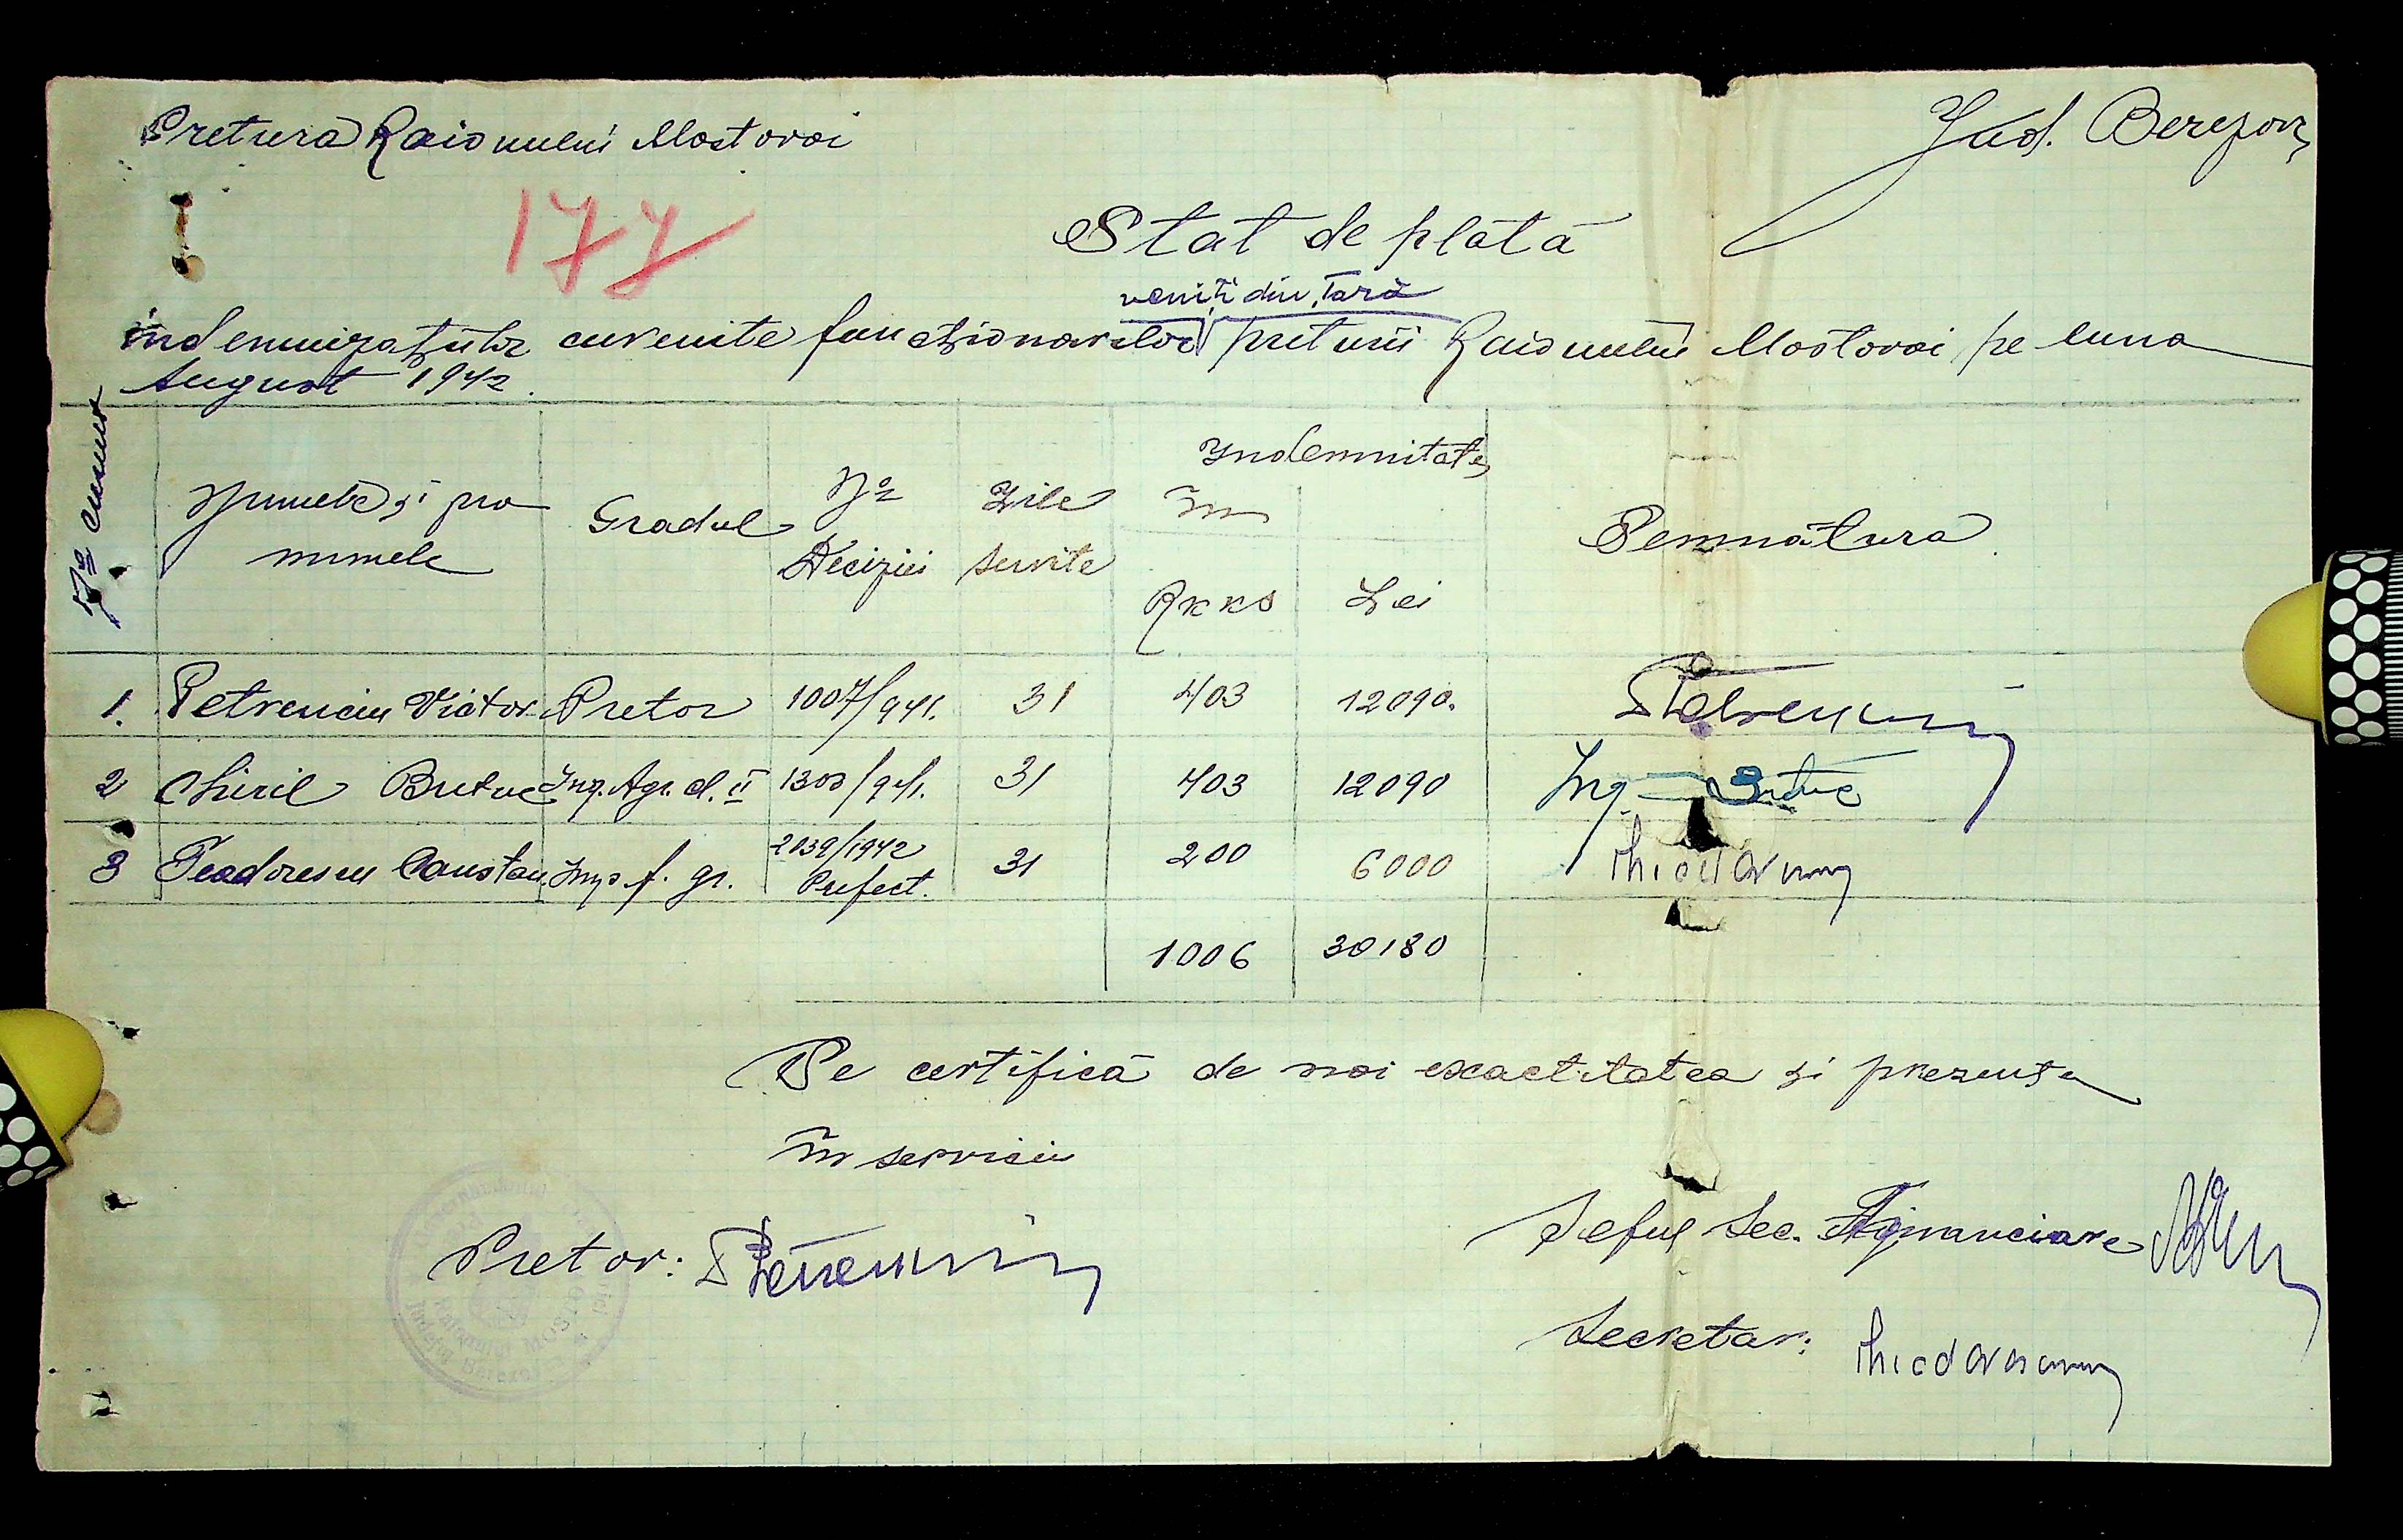 Pretura Raionului Mostovoi
Jud. Berezov
177
Stat de plată
veniți din Țară
indemnizațiilor cuvenite funcționarilor preturii Raionului Mostovoi pe luna
August 1942.
No curent
Numele și pro
numele
Gradul
No
Deciziei
Zile
servite
Indemnitate
în
RKKS
Lei
Semnătura
1. Petrenciu Victor Pretor 1007/941. 31 403 12090. Petrenciu
2 Chiril Butuc Ing. Agr. cl. II 1303/941. 31 403 12090 Ing. Butuc
3 Teodorescu Constan. Imp. f. gr. 2039/1942 Prefect. 31 200 6000
1006 30180
Se certifică de noi exactitatea și prezența
în serviciu
Pretor: Petrenciu
Șeful Sec. Financiare
Secretar:
Raionului MOSTOVOI
Județul Berezovca